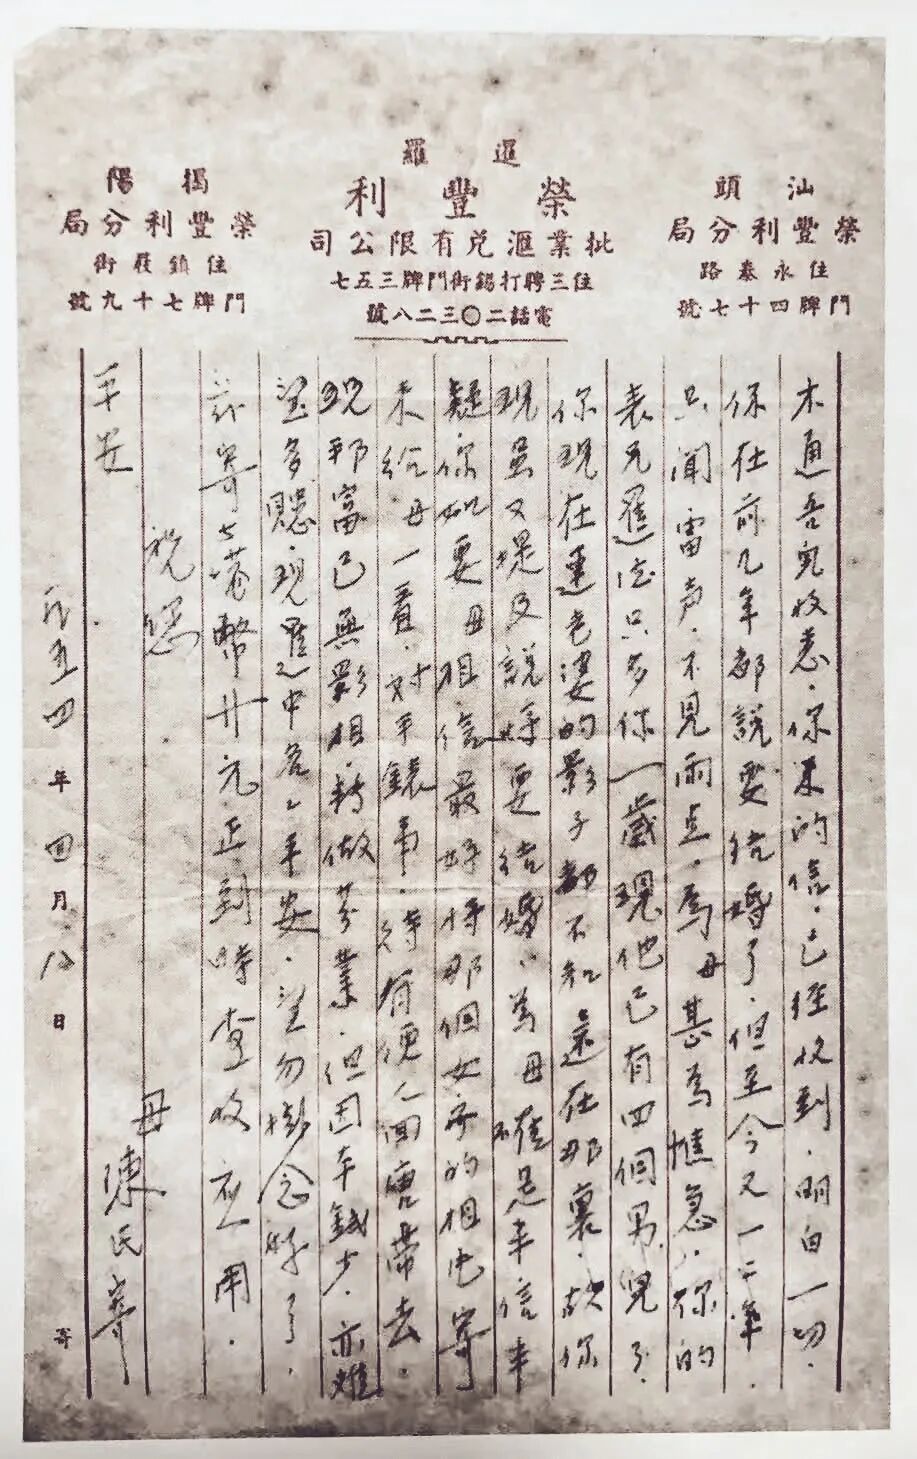 汕頭
榮豐利分局
住永泰路
門牌四十七號
暹羅
榮豐利
批業滙兌有限公司
住三聘打錫街門牌三五七
電話二〇三二八號
揭陽
榮豐利分局
住鎮街
門牌七十九號
木通吾兒收悉.你来的信.已经收到.明白一切.
你在前几年都說要结婚了.但至今又一二年.
只聞雷声.不見雨点.為母甚為憔急.你的
表兄暹只多你一歲現他已有四個男兒了.
你現在連老婆的影子都不知還在那裏.故你
現虽又提及說将要结婚.為母確是半信半
疑你如要母相信最好将那個女子的相片寄
来给母一看.对手錶事.待有便人回唐帶去.
現那富已無影相.轉做芬業.但因本錢少.亦难
望多賺.現暹中各々平安.望勿掛念好了.
茲寄去港幣廿元正到時查收应用.
祝您
平安 母陳氏寄
五四年四月八日 寄